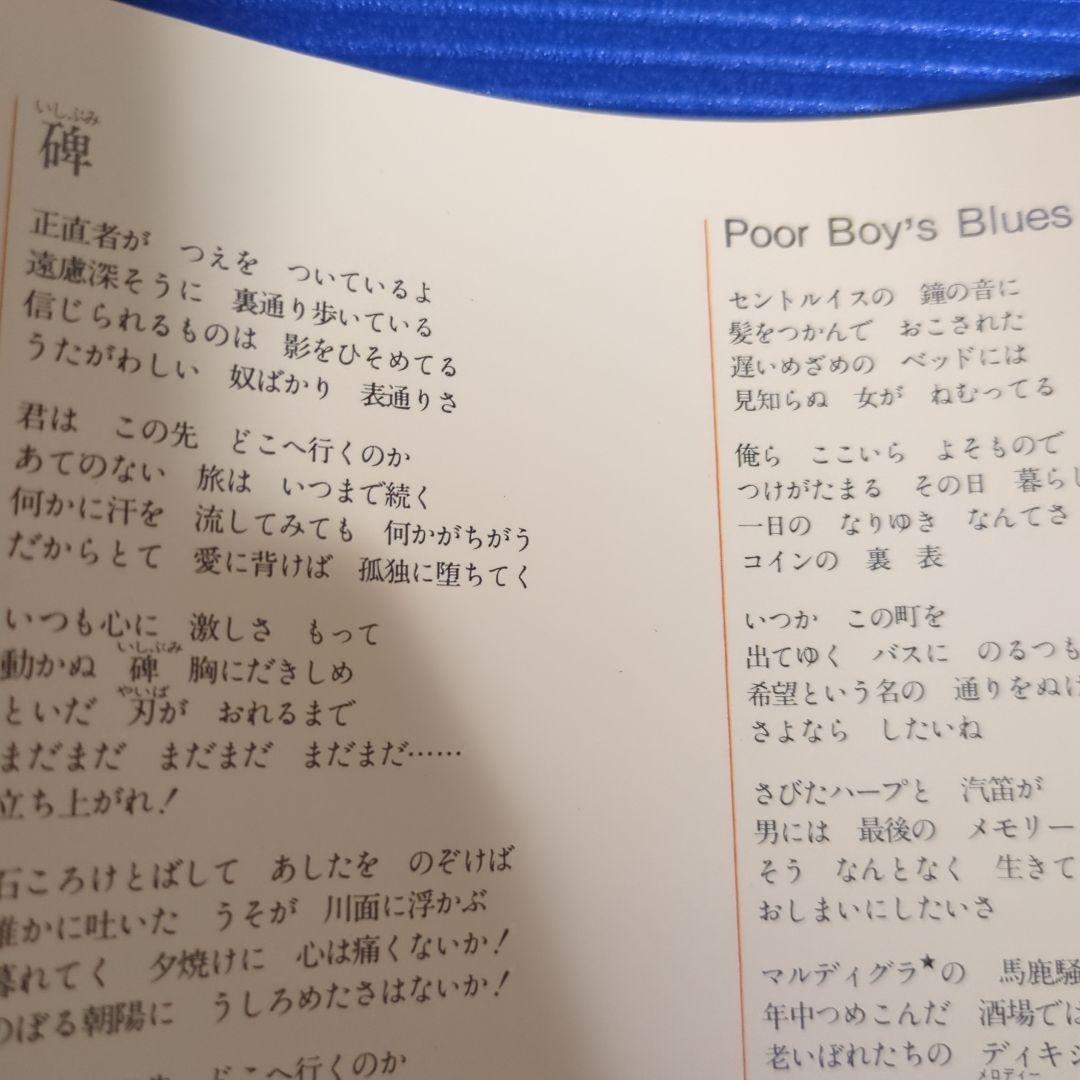 いしぶみ
碑
正直者が　つえを　ついているよ
遠慮深そうに　裏通り歩いている
信じられるものは　影をひそめてる
うたがわしい　奴ばかり　表通りさ
君は　この先　どこへ行くのか
あてのない　旅は　いつまで続く
何かに汗を　流してみても　何かがちがう
だからとて　愛に背けば　孤独に堕ちてく
いつも心に　激しさ　もって
いしぶみ
動かぬ　碑　胸にだきしめ
やいば
といだ　刃が　おれるまで
まだまだ　まだまだ　まだまだ……
立ち上がれ！
石ころけとばして　あしたを　のぞけば
誰かに吐いた　うそが　川面に浮かぶ
暮れてく　夕焼けに　心は痛くないか！
のぼる朝陽に　うしろめたさはないか！
どこへ行くのか
Poor Boy's Blues
セントルイスの　鐘の音に
髪をつかんで　おこされた
遅いめざめの　ベッドには
見知らぬ　女が　ねむってる
俺ら　ここいら　よそもので
つけがたまる　その日　暮らし
一日の　なりゆき　なんてさ
コインの　裏　表
いつか　この町を
出てゆく　バスに　のるつも
希望という名の　通りをぬけ
さよなら　したいね
さびたハープと　汽笛が
男には　最後の　メモリー
そう　なんとなく　生きて
おしまいにしたいさ
マルディグラ★の　馬鹿騒
年中つめこんだ　酒場では
老いぼれたちの　ディキシ
メロディー